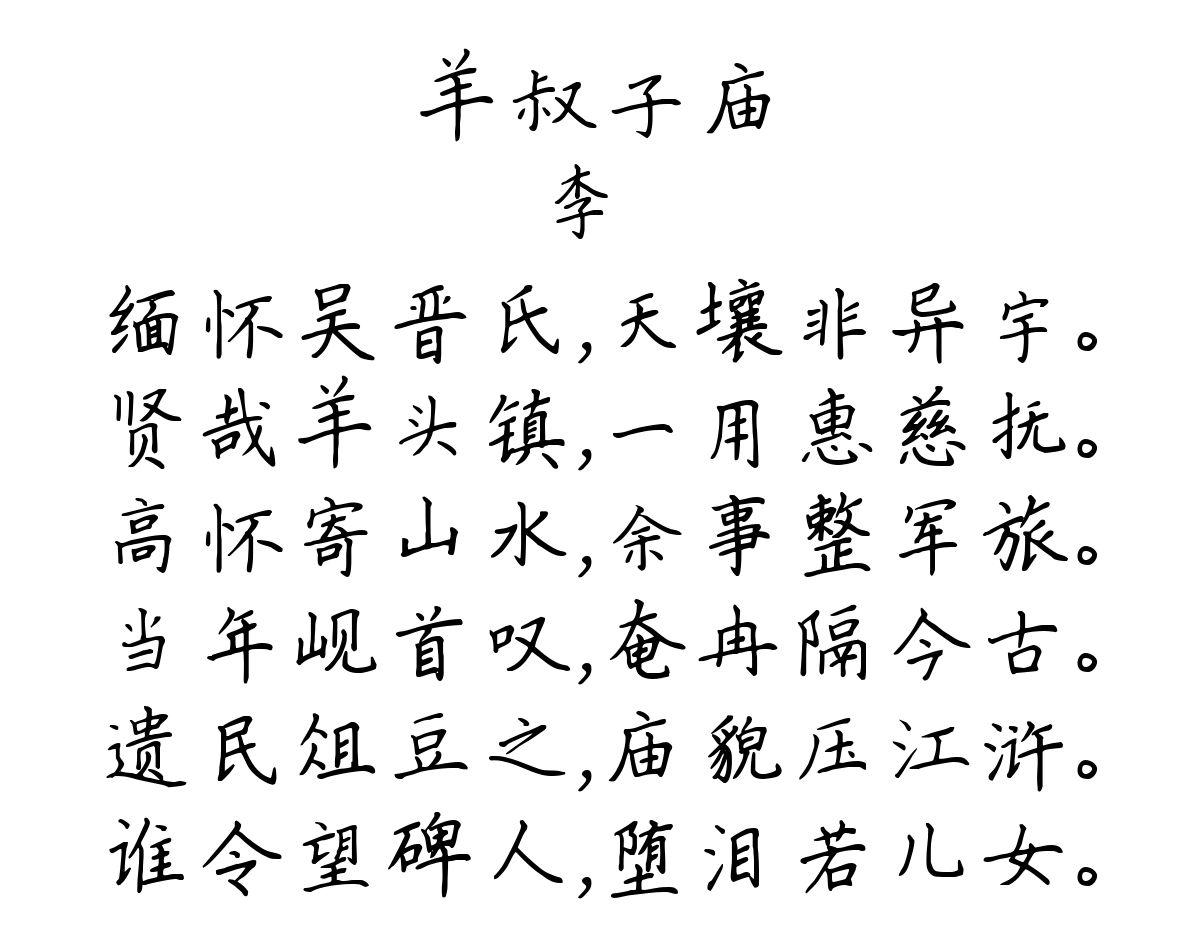 羊叔子庙
李
缅怀吴晋氏,天壤非异宇。
贤哉羊头镇,一用惠慈抚。
高怀寄山水,余事整军旅。
当年岘首叹,奄冉隔今古。
遗民俎豆之,庙貌压江浒。
谁令望碑人,堕泪若儿女。